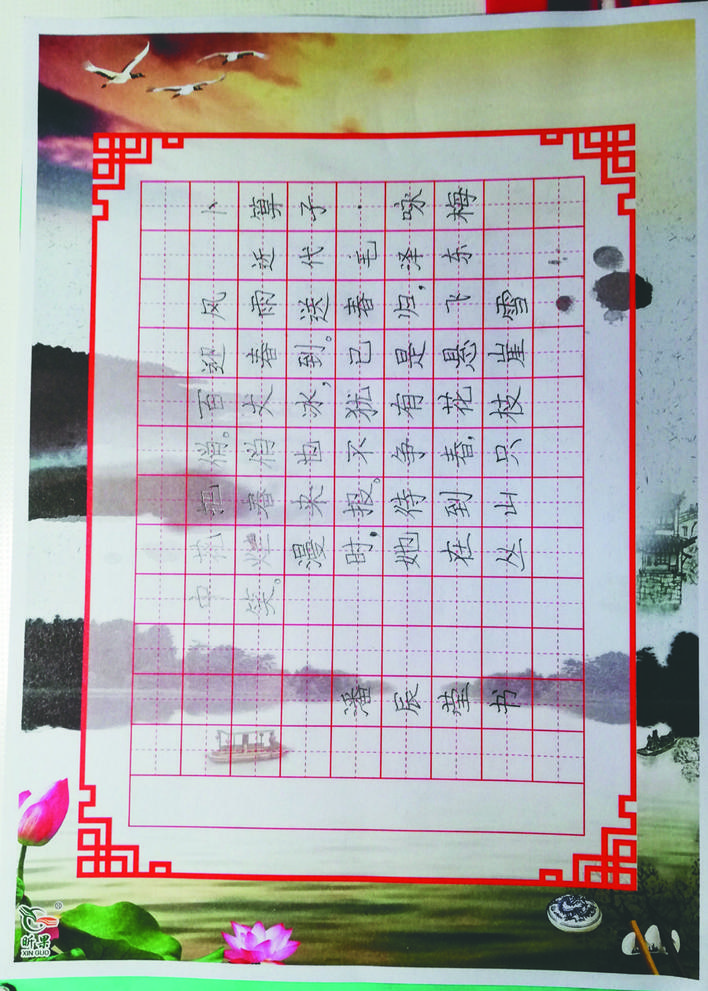 卜算子·咏梅
近代毛泽东
风雨送春归,飞雪
迎春到。已是悬崖
百丈冰,犹有花枝
俏。俏也不争春,只
把春来报。待到山
花烂漫时,她在丛
中笑。
潘辰莹书
昕果®
XIN GUO